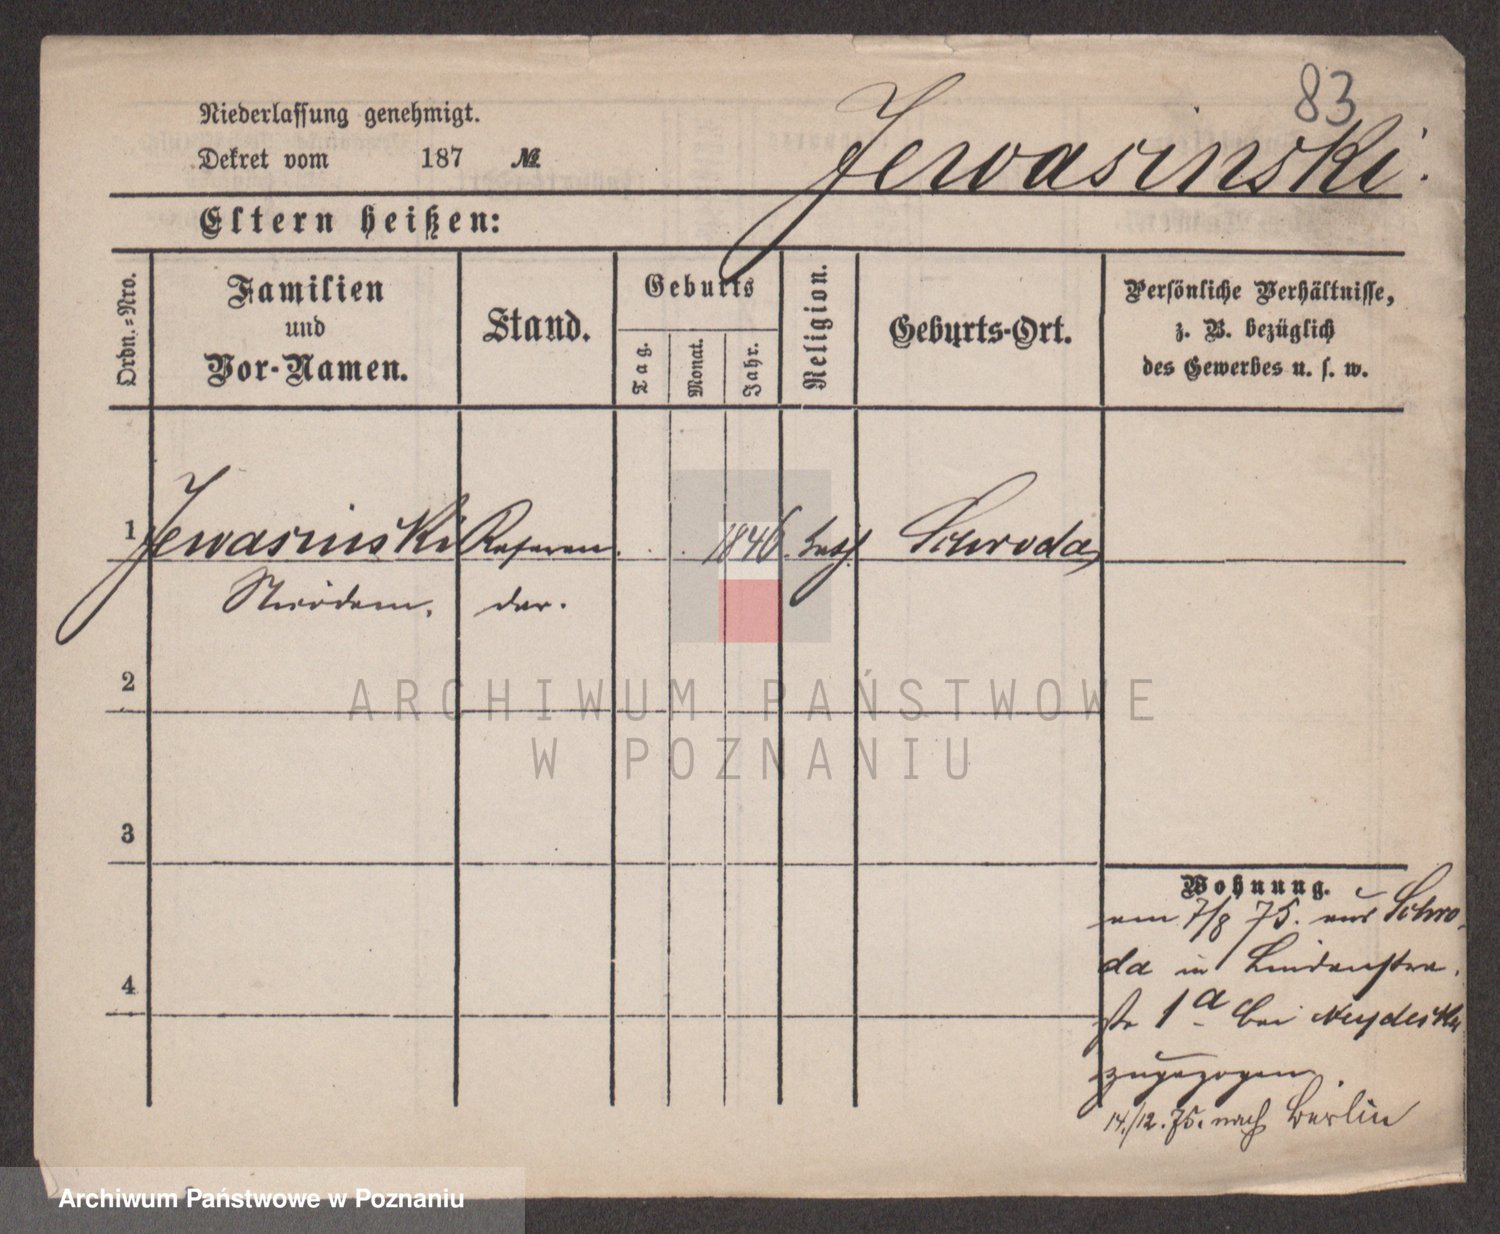 83
Niederlassung genehmigt.
Dekret vom 187 №
Jewasinski.
Eltern heißen:
Ordn.-Nro.
Familien
und
Vor-Namen.
Stand.
Geburts
Tag.
Monat.
Jahr.
Religion.
Geburts-Ort.
Persönliche Verhältnisse,
z. B. bezüglich
des Gewerbes u. s. w.
1 Jewasinski Referen 1846 kath Schroda
dar.
2
ARCHIWUM PAŃSTWOWE
W POZNANIU
3
Wohnung.
am 7/8 75. aus Schro-
da in Lindenstra
ße 1a bei
zugezogen.
4
14./12.75. nach Berlin
Archiwum Państwowe w Poznaniu